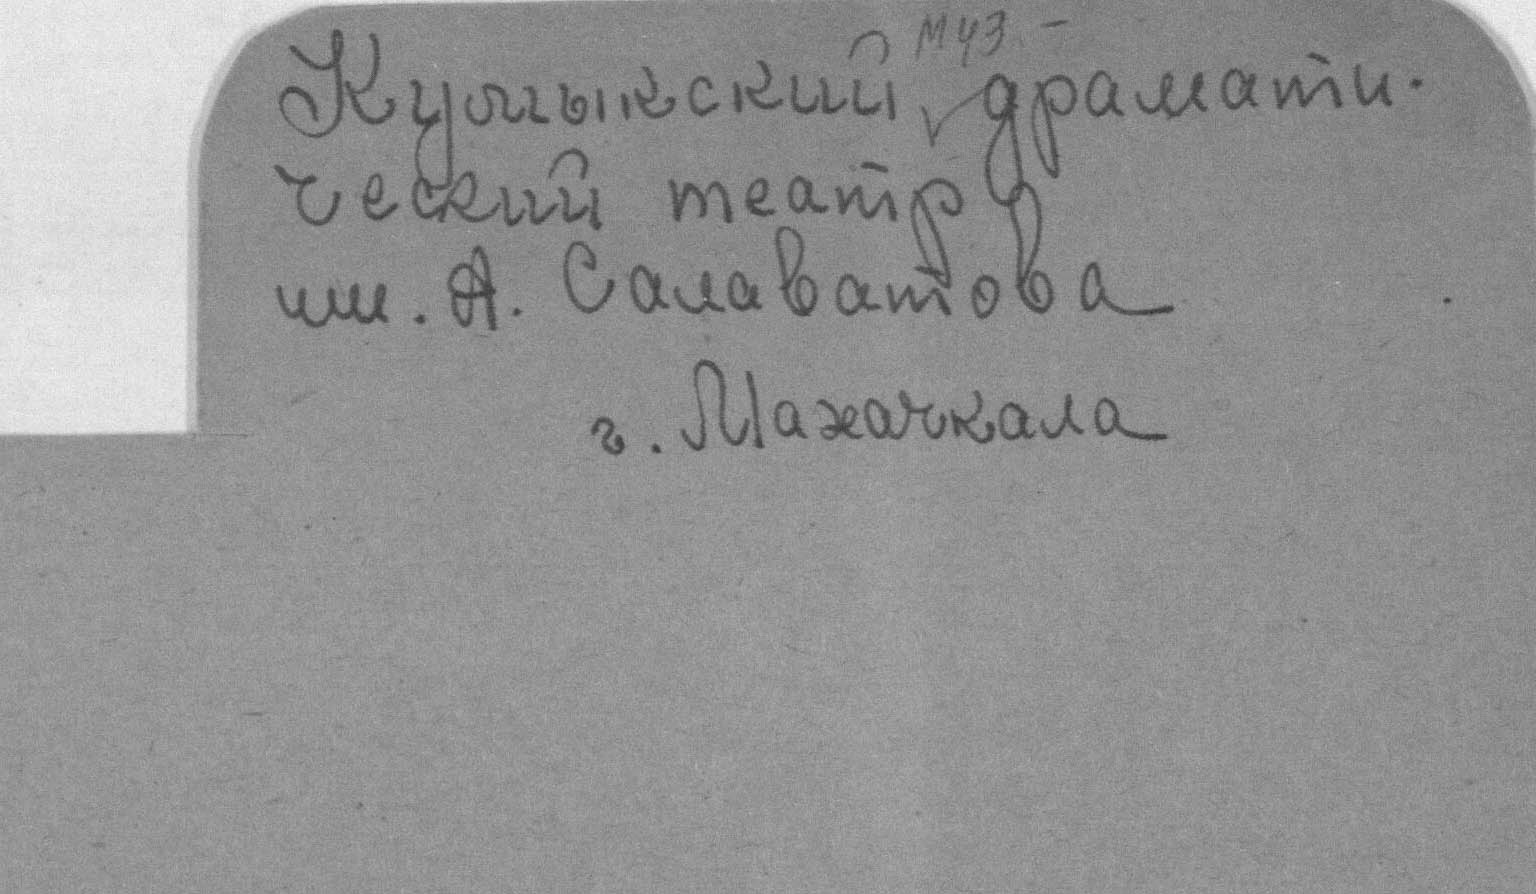 Кумыкский муз.- драмати-
ческий театр
им. А. Салаватова
г. Махачкала